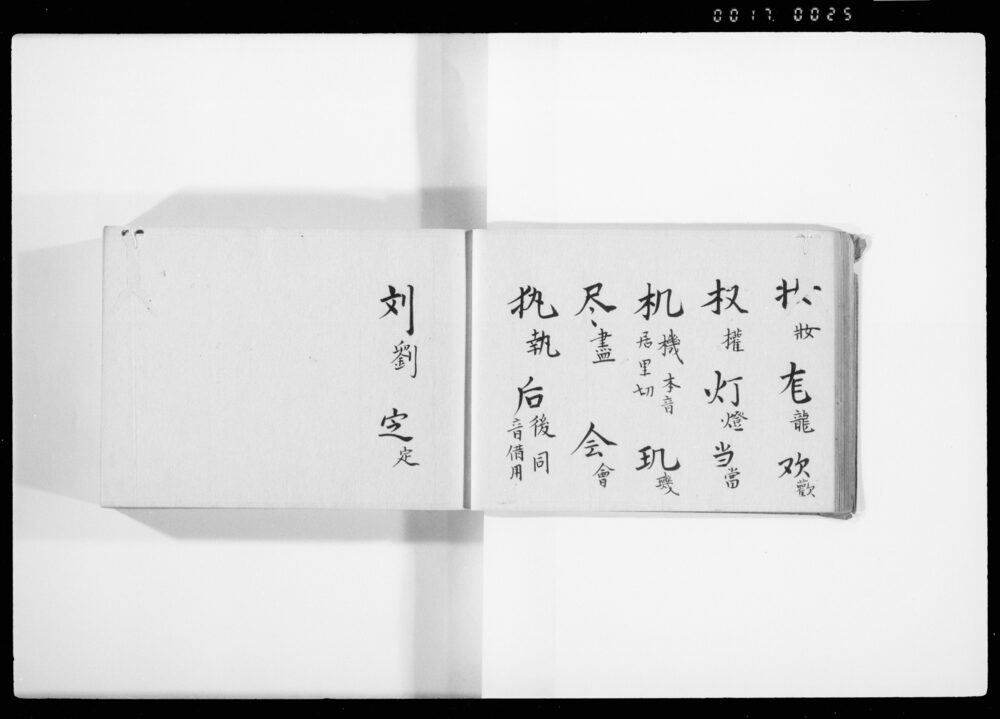 0017 0025
妝 龙 龍 欢 歡
权 權 灯 燈 当 當
机 機 本音 居里切 玑 璣
尽 盡 会 會
执 執 后 後同 音借用
刘 劉 㝎 定